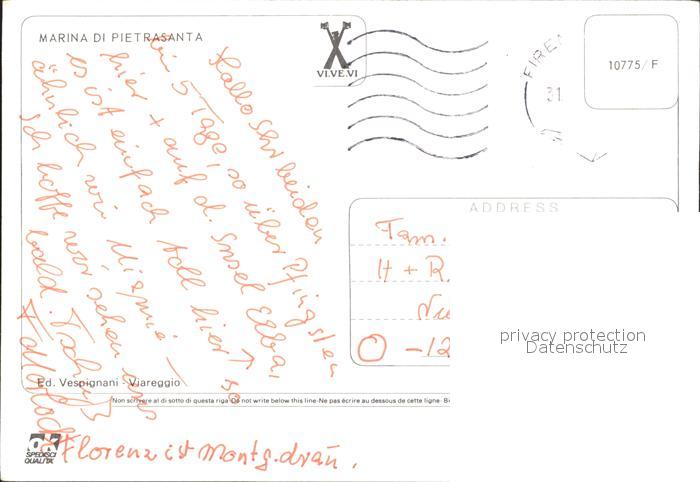 MARINA DI PIETRASANTA
VI.VE.VI
FIRE
31
10775/F
Hallo Ihr beiden
bin 5 Tage, so über Pfingsten
hier + auf d. Insel Elba,
es ist einfach toll hier so
ähnlich wie
ich hoffe wir sehen uns
bald. Tschüß
ADDRESS
Fam.
H + R.
O -12
privacy protection
Datenschutz
Ed. Vespignani - Viareggio
Non scrivere al di sotto di questa riga-Do not write below this line-Ne pas écrire au dessous de cette ligne-
OK
SPEDISCI
QUALITA'
Florenz ist Montg. dran.